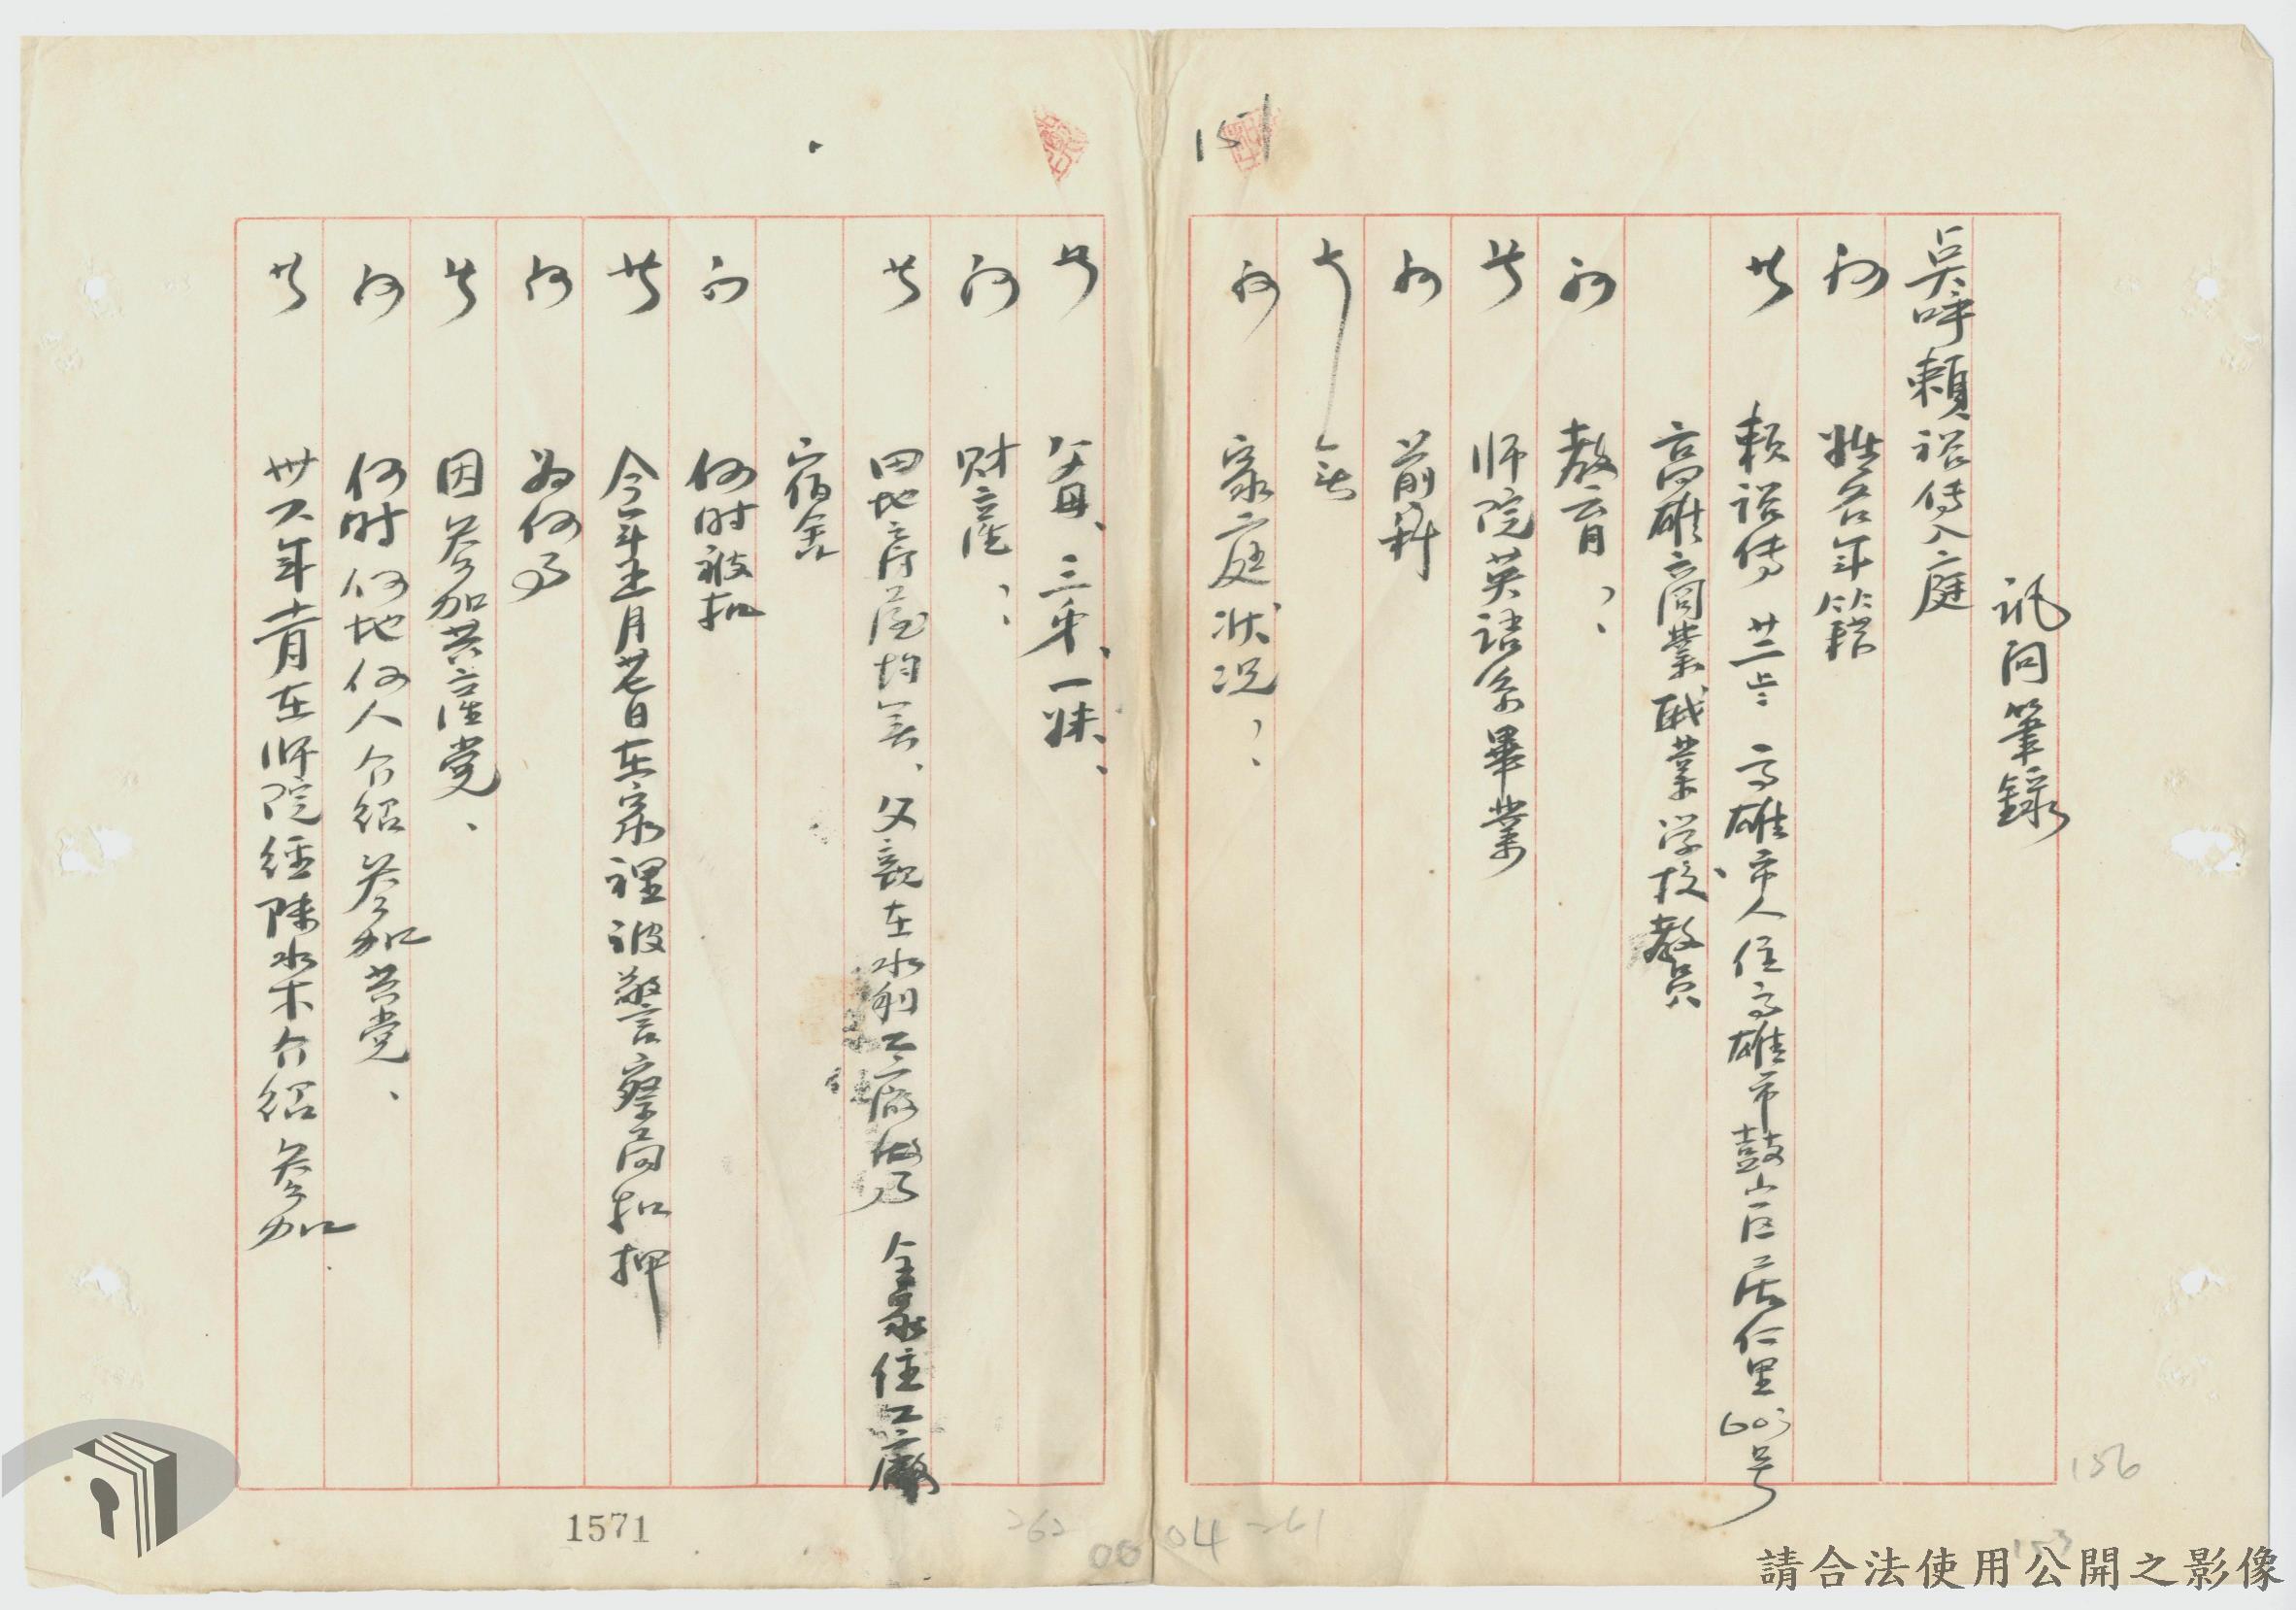 訊問筆録
点呼賴裕傳入庭
问 姓名年籍
答 賴裕傳 廿二歲 高雄市人住高雄市鼓山区居仁里603号
高雄商業职業学校教员
问 教育?
答 师院英語系畢業
问 前科
答 無
问 家庭状况?
答 父母、三弟、一妹、
问 财产?
答 田地房屋均無、父親在水利工廠做事 全家住工廠
宿舍
问 何时被扣
答 今年 月廿七日在家裡被警察局扣押
问 为何事
答 因参加共産党、
问 何时何地何人介绍参加共党、
答 卅六年 月在师院经陳水木介绍参加
151
156
1571
262
00 04
261
153
請合法使用公開之影像